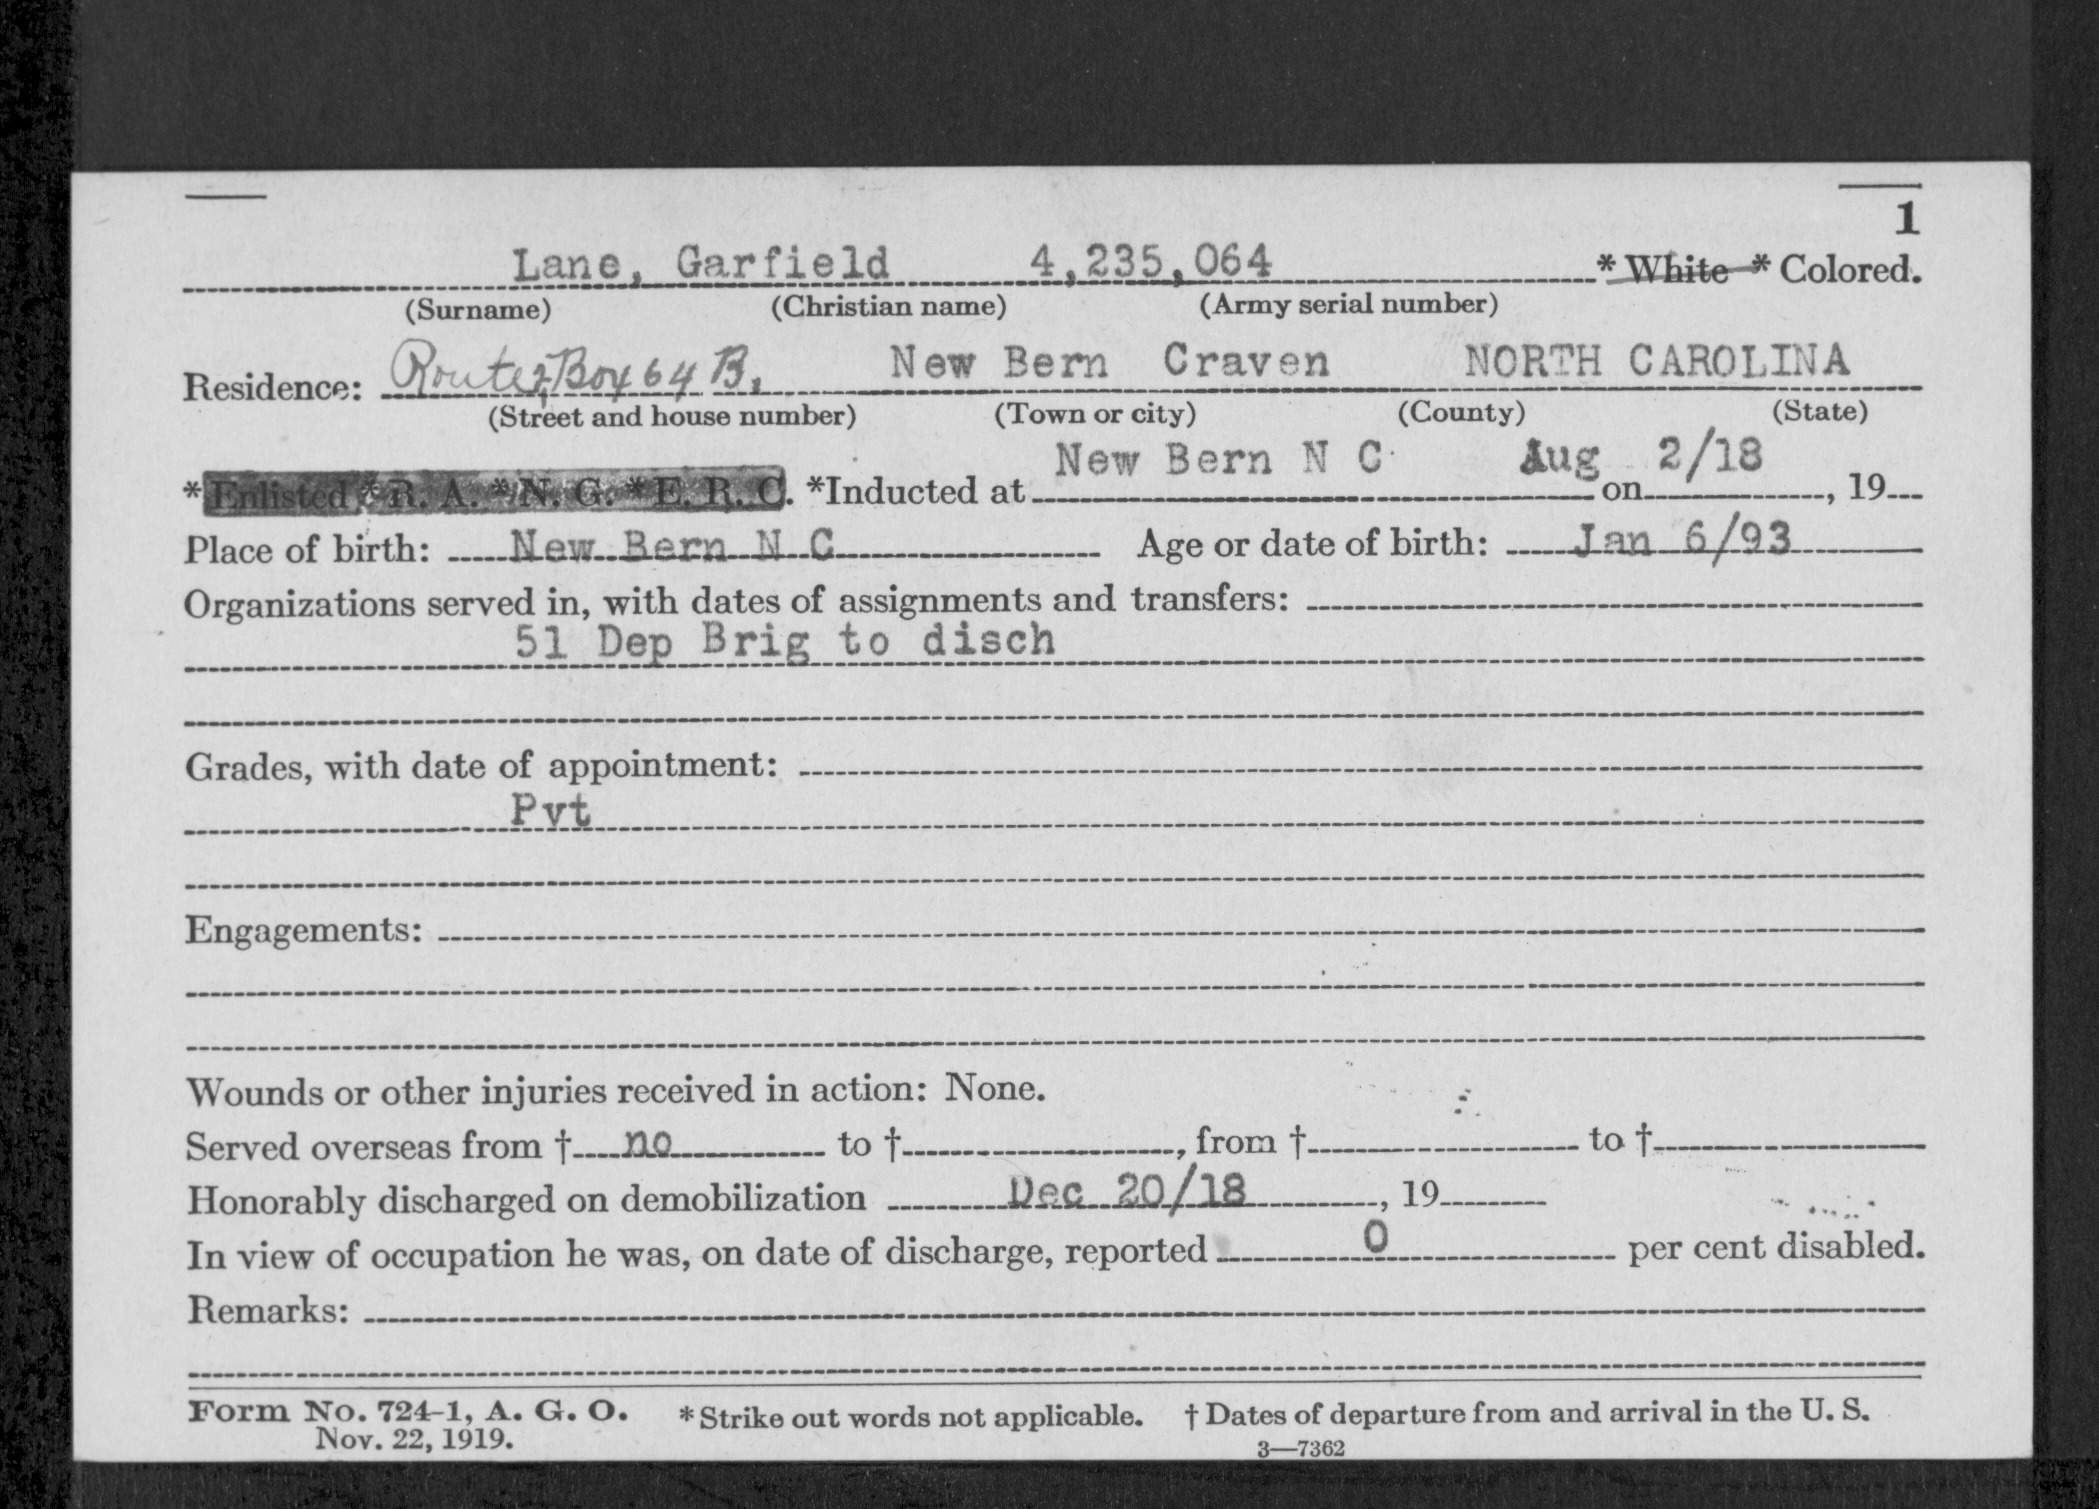 1
Lane, Garfield 4,235,064 * White * Colored.
(Surname) (Christian name) (Army serial number)
Residence: Route 2, Box 64 B, New Bern Craven NORTH CAROLINA
(Street and house number) (Town or city) (County) (State)
* Enlisted * R. A. * N. G. * E. R. C. *Inducted at New Bern N C on Aug 2/18, 19
Place of birth: New Bern N C Age or date of birth: Jan 6/93
Organizations served in, with dates of assignments and transfers:
51 Dep Brig to disch
Grades, with date of appointment:
Pvt
Engagements:
Wounds or other injuries received in action: None.
Served overseas from † no to †, from † to †
Honorably discharged on demobilization Dec 20/18, 19
In view of occupation he was, on date of discharge, reported 0 per cent disabled.
Remarks:
Form No. 724-1, A. G. O. * Strike out words not applicable. † Dates of departure from and arrival in the U. S.
Nov. 22, 1919. 3—7362